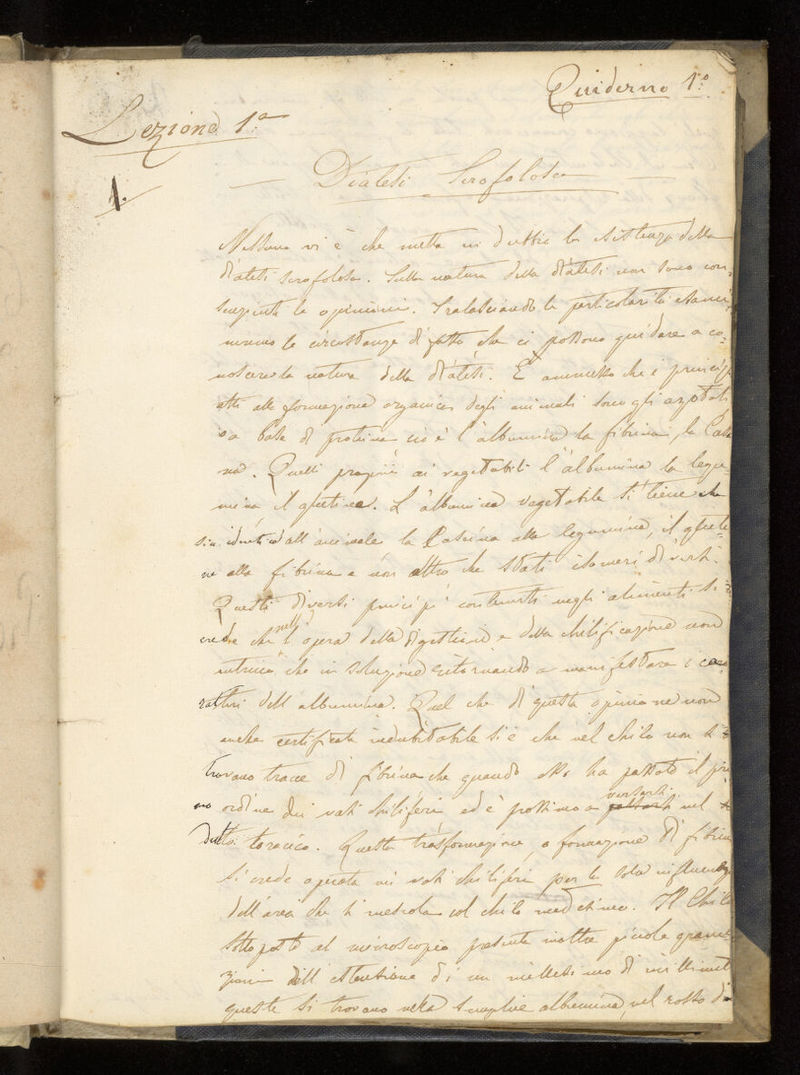 Quiderno 1.°
Lezione 1.a
1.
Diatesi Scrofolosa
Nessuno vi è che metta in dubbio la esistenza della
diatesi scrofolosa. Sulla natura della diatesi non sono con-
le opinioni. Tralasciando le particolarità esami-
niamo le circostanze di fatto che ci possono guidare a co-
noscere la natura della diatesi. È ammesso che i principj
atti alla formazione organica degli animali sono gli azotati
o a base di proteina cioè l'albumina la fibrina, la Casei
na. Quelli proprii ai vegetabili l'albumina la legu-
mina il glutine. L'albumina vegetabile si tiene che
sia identica all'animale la Caseina alla legumina, il gluti
ne alla fibrina e non altro che stati isomeri diversi.
Questi diversi principj contenuti negli alimenti si
crede che nell'opera della digestione e della chilificazione non
che in soluzione ritornando a manifestare i ca
ratteri dell'albumina. Quel che di questa opinione non
anche certificata indubitabile si è che nel chilo non si
trovano tracce di fibrina che quando esso ha passato il pri
mo ordine dei vasi chiliferi ed è prossimo a versarsi nel
dutto toracico. Questa trasformazione, o formazione di fibrina
si crede operata nei vasi chiliferi per la sola influenza
dell'area che si mescola col chilo medesimo. Il Chilo
sottoposto al microscopio presenta inoltre piccole granu-
zioni dell'estensione di un millesimo di millimet
queste si trovano nella semplice albumina, nel rosso d